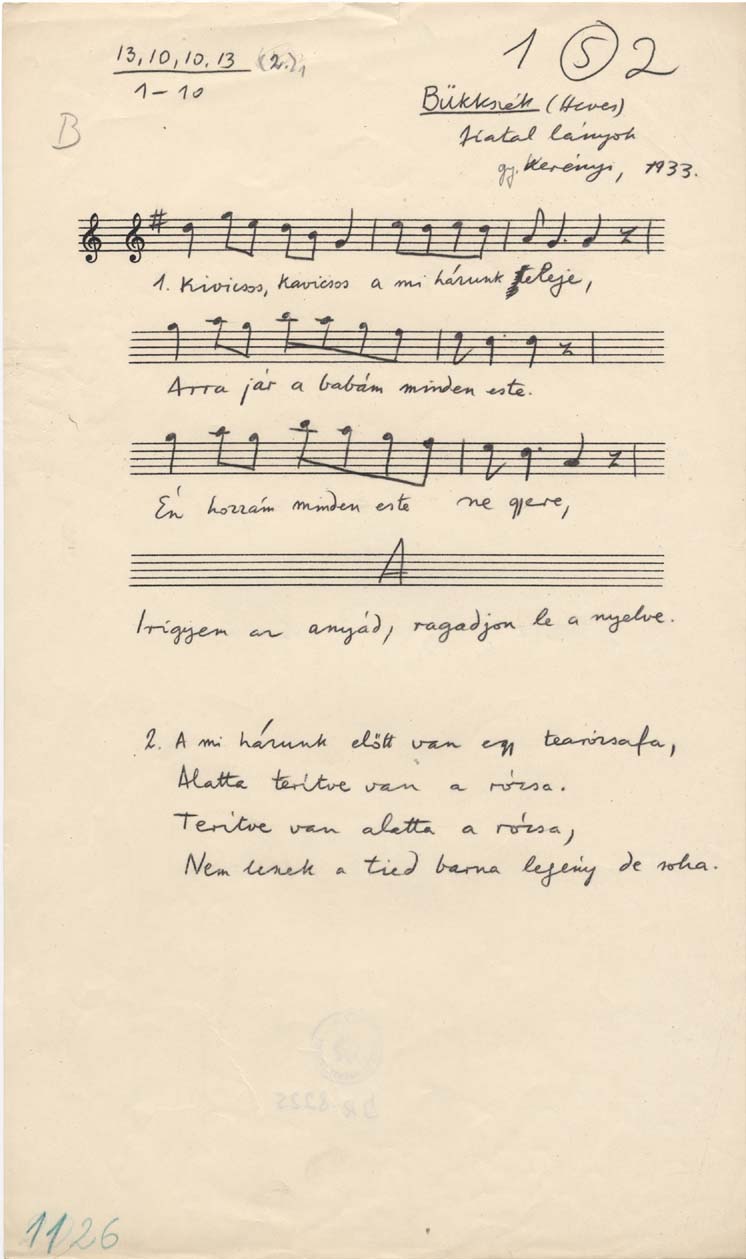 13, 10, 10, 13 (2.)
1 – 10
1 5 2
B
Bükkszék (Heves)
fiatal lányok
gy. Kerényi, 1933.
1. Kivicsos, kavicsos a mi házunk eleje,
Arra jár a babám minden este.
Én hozzám minden este ne gyere,
A
Irígyem az anyád, ragadjon le a nyelve.
2. A mi házunk előtt van egy tearózsafa,
Alatta terítve van a rózsa.
Terítve van alatta a rózsa,
Nem leszek a tied barna legény de soha.
1126